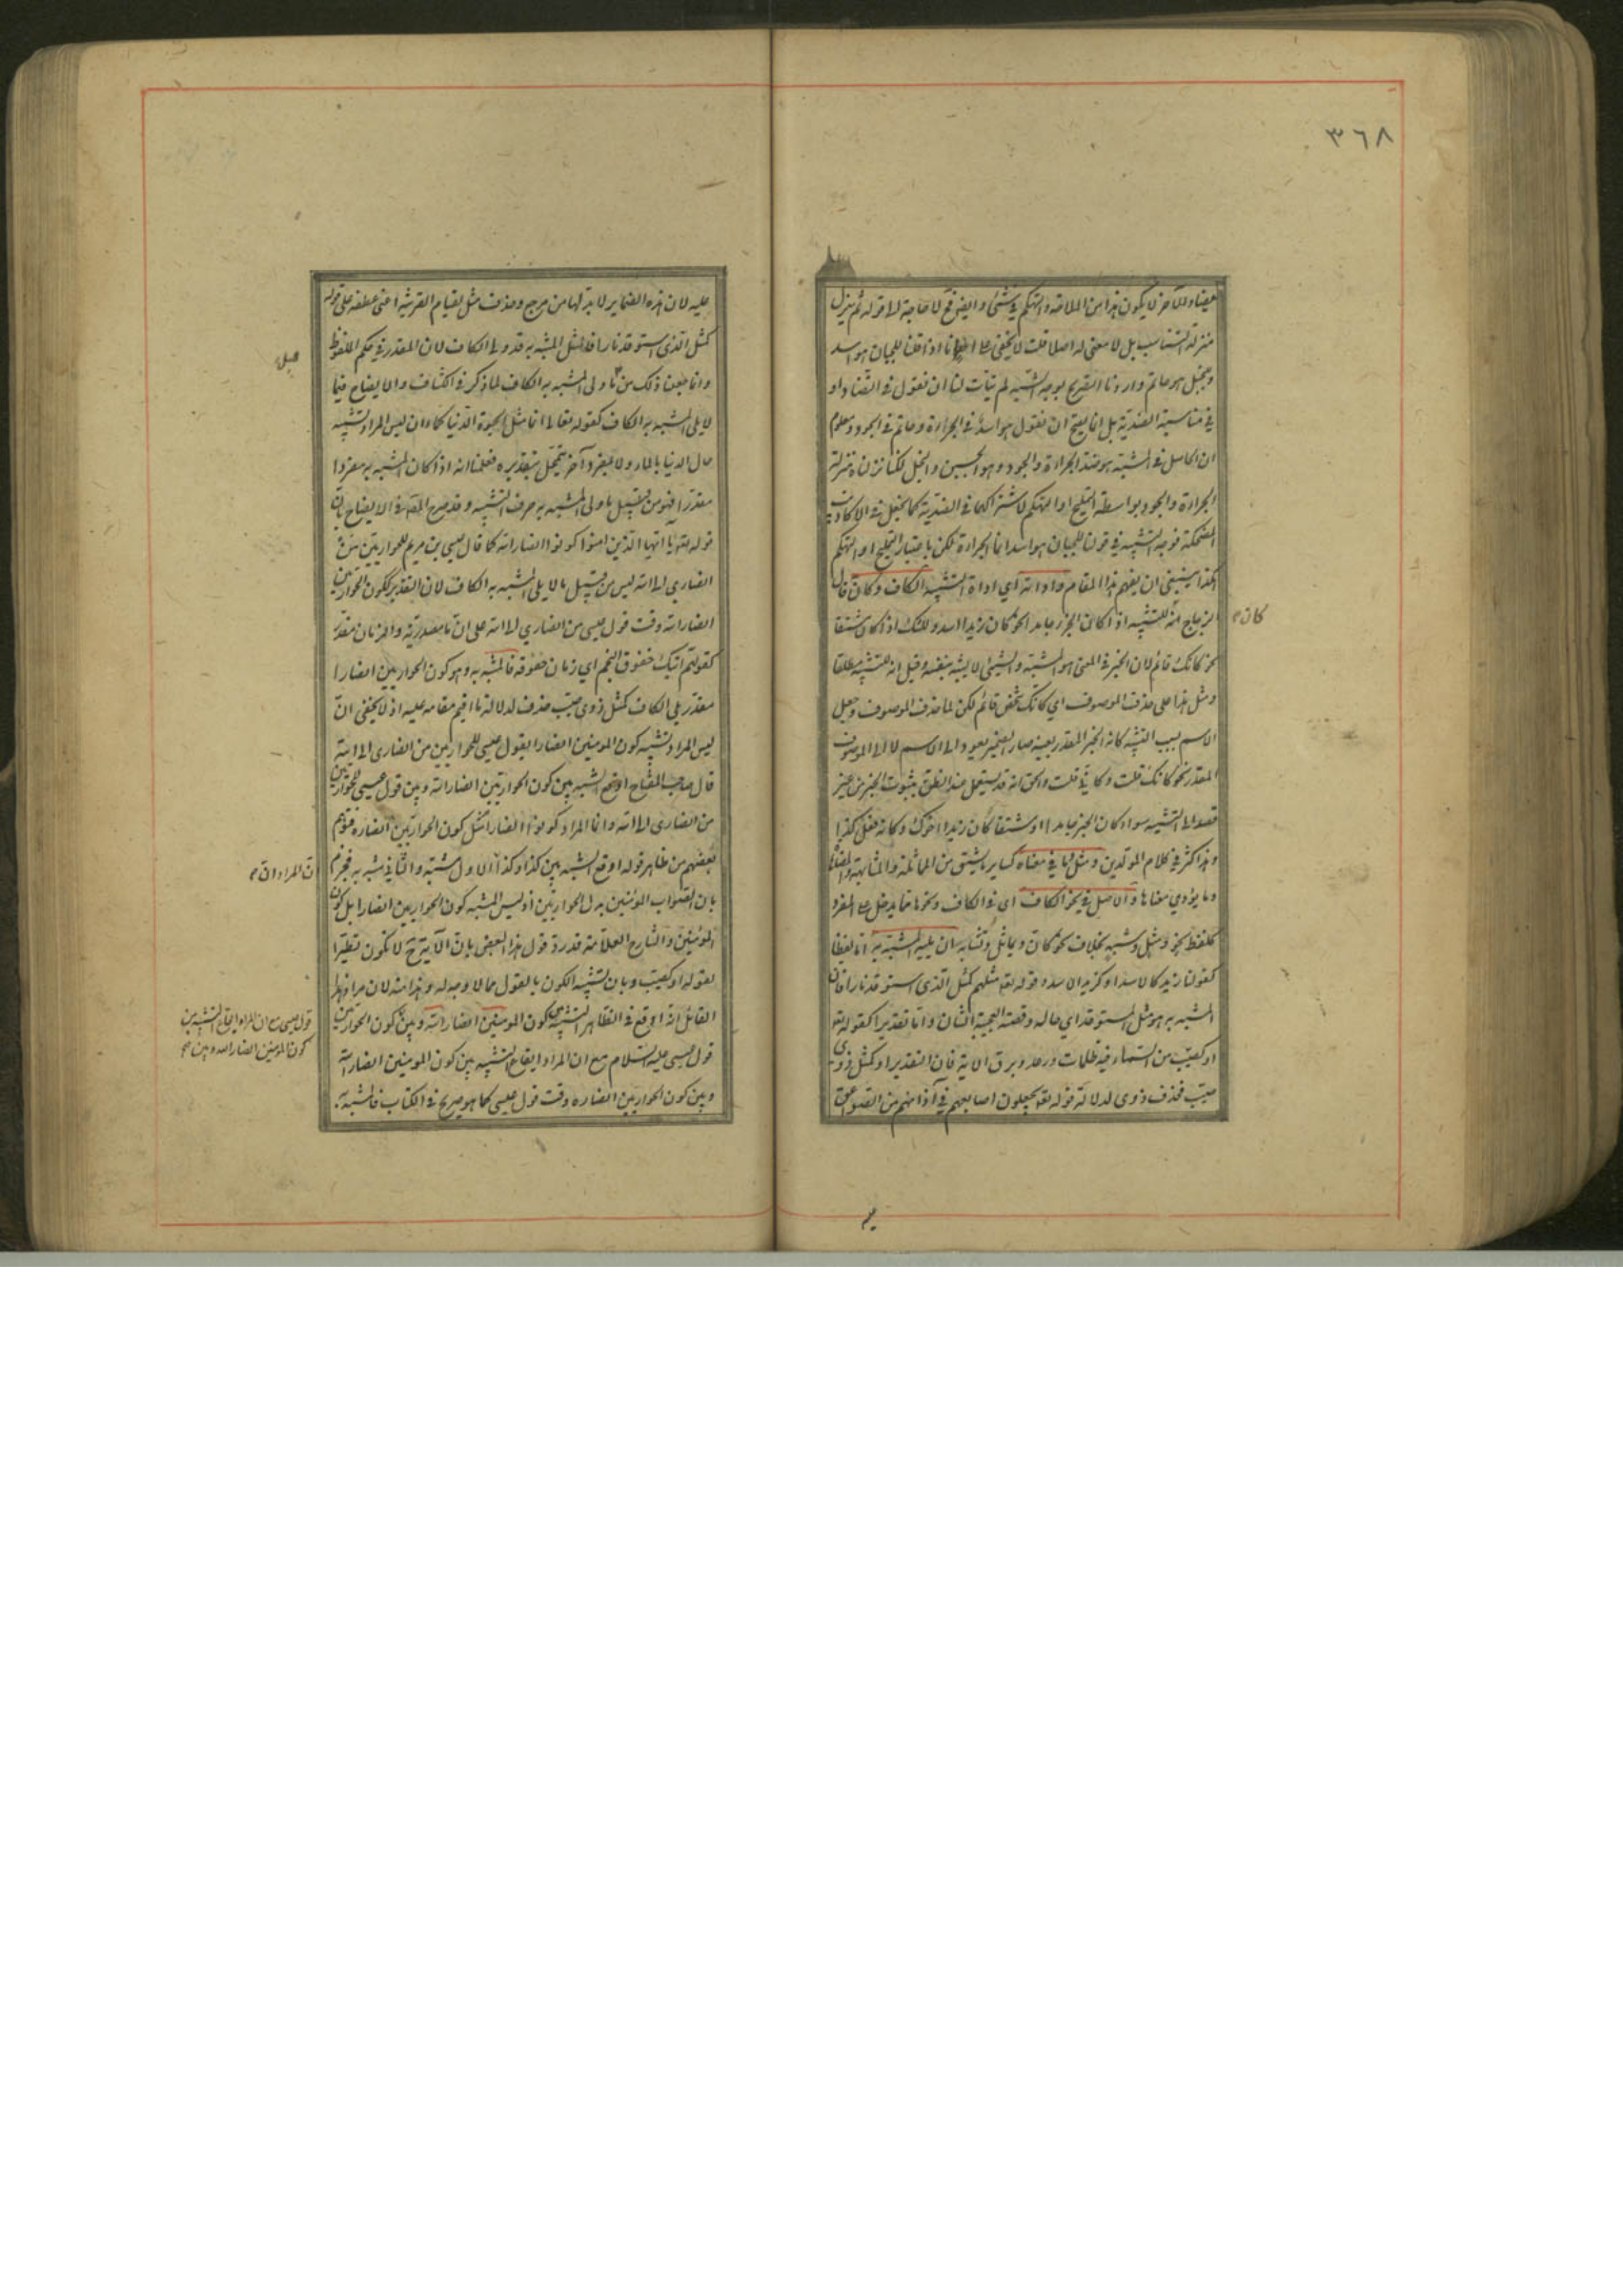 ٣٦٨
مضادا للآخر لا يكون هذا من الملاحة والتهكم في شئ وايضا فح لا حاجة الى قوله ثم ينزل
منزلة التناسب بل لا معنى له اصلا قلت لا يخفى على احد انا اذا قلنا للجبان هو اسد
وللبخيل هو حاتم واردنا التصريح بوجه الشبه لم يتأت لنا ان نقول في التضاد او
في مناسبة الضدية بل انما يصح ان نقول هو اسد في الجراءة وحاتم في الجود ومعلوم
ان الحاصل في المشبه هو ضد الجراءة والجود وهو الجبن والبخل لكنا نزلناه منزلة
الجراءة والجود بواسطة التمليح او التهكم لاشتراكهما في الضدية كما يجعل في الاكاذيب
المضحكة فوجه الشبه في قولنا للجبان هو اسد انما الجراءة لكن باعتبار التمليح او التهكم
هكذا ينبغي ان يفهم هذا المقام واداته اي اداة التشبيه الكاف وكان قال
الزجاج انه للتشبيه اذا كان الخبر جامدا نحو كان زيدا اسد وللشك اذا كان مشتقا
كان
نحو كانك قائم لان الخبر في المعنى هو المشبه والشئ لا يشبه بنفسه وقيل انه للتشبيه مطلقا
ومثل هذا على حذف الموصوف اي كانك شخص قائم لكن لما حذف الموصوف وجعل
الاسم بسبب التشبيه كانه الخبر المقدر بعينه صار الضمير يعود الى الاسم لا الى الموصوف
المقدر نحو كانك قلت وكاني قلت والحق انه قد يستعمل عند الظن بثبوت الخبر من غير
قصد الى التشبيه سواء كان الخبر جامدا او مشتقا كان زيدا اخوك وكانه فعل كذا
وهذا كثير في كلام المولدين ومثل وما في معناه كسائر ما يشتق من المماثلة والمشابهة والمضاهاة
وما يؤدي معناها والاصل في نحو الكاف اي في الكاف ونحوها مما يدخل على المفرد
كلفظ نحو ومثل وشبه بخلاف نحو كان ويماثل وتشابه ان يليه المشبه به اما لفظا
كقولنا زيد كالاسد او كزيد الاسد وقوله تعا مثلهم كمثل الذي استوقد نارا فان
المشبه به هو مثل المستوقد اي حاله وقصته العجيبة الشان واما تقديرا كقوله تعا
او كصيب من السماء فيه ظلمات ورعد وبرق الاية فان التقدير او كمثل ذوي
صيب فحذف ذوي لدلالة قوله تعا يجعلون اصابعهم في آذانهم من الصواعق
عليه لان هذه الضماير لا بد لها من مرجع وحذف مثل لقيام القرينة اعني عطفه على قوله
كمثل الذي استوقد نارا فالمثل المشبه به قد ولي الكاف لان المقدر في حكم الملفوظ
وانما جعلنا ذلك من ما ولى المشبه به الكاف لما ذكر في الكشاف والايضاح فيما
لا يلى المشبه به الكاف كقوله تعالى انما مثل الحيوة الدنيا كماء ان ليس المراد تشبيه
حال الدنيا بالماء ولا بمفرد آخر يتمحل بتقديره فعلمنا انه اذا كان المشبه به مفردا
مقدرا فهو من قبيل ما ولى المشبه به حرف التشبيه وقد صرح المص في الايضاح بان
قوله تعا يا ايها الذين امنوا كونوا انصار الله كما قال عيسى بن مريم للحواريين من
انصاري الى الله ليس من قبيل ما لا يلى المشبه به الكاف لان التقدير ككون الحواريين
انصار الله وقت قول عيسى من انصاري الى الله على ان ما مصدرية والزمان مقدر
كقولهم آتيك خفوق النجم اي زمان خفوقه فالمشبه به وهو كون الحواريين انصارا
مقدر يلى الكاف كمثل ذوي صيب حذف لدلالة ما اقيم مقامه عليه اذ لا يخفى ان
ليس المراد تشبيه كون المومنين انصارا بقول عيسى للحواريين من انصارى الى الله
قال صاحب المفتاح اوقع الشبه بين كون الحواريين انصار الله وبين قول عيسى للحواريين
من انصارى الى الله وانما المراد كونوا انصارا مثل كون الحواريين انصاره فتوهم
بعضهم من ظاهر قوله اوقع الشبه بين كذا وكذا ان الاول مشبه والثاني مشبه به فجزم
ان المراد ان
بان الصواب المؤمنين بدل الحواريين اذ ليس المشبه كون الحواريين انصارا بل كون
المؤمنين والشارح العلامة قد رد قول هذا البعض بان الآية ح لا تكون نظيرا
لقوله او كصيب وبان تشبيه الكون بالقول مما لا وجه له وهذا منه لان مراد هذا
القائل انه اوقع في الظاهر التشبيه بين كون المومنين انصار الله وبين كون الحواريين
قول عيسى مع ان المراد ايقاع التشبيه بين
كون المومنين انصار الله وبين
قول عيسى عليه السلام مع ان المراد ايقاع التشبيه بين كون المومنين انصار الله
وبين كون الحواريين انصاره وقت قول عيسى كما هو صريح في الكتاب فالمشبه به